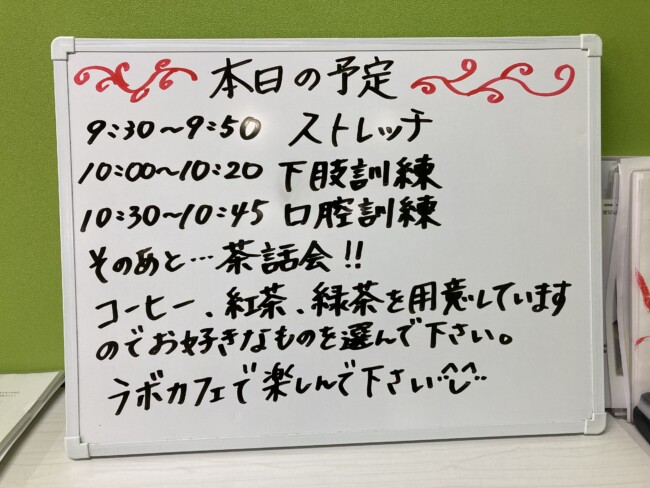 本日の予定
9:30~9:50 ストレッチ
10:00~10:20 下肢訓練
10:30~10:45 口腔訓練
そのあと…茶話会!!
コーヒー、紅茶、緑茶を用意しています
のでお好きなものを選んで下さい。
ラボカフェで楽しんで下さい